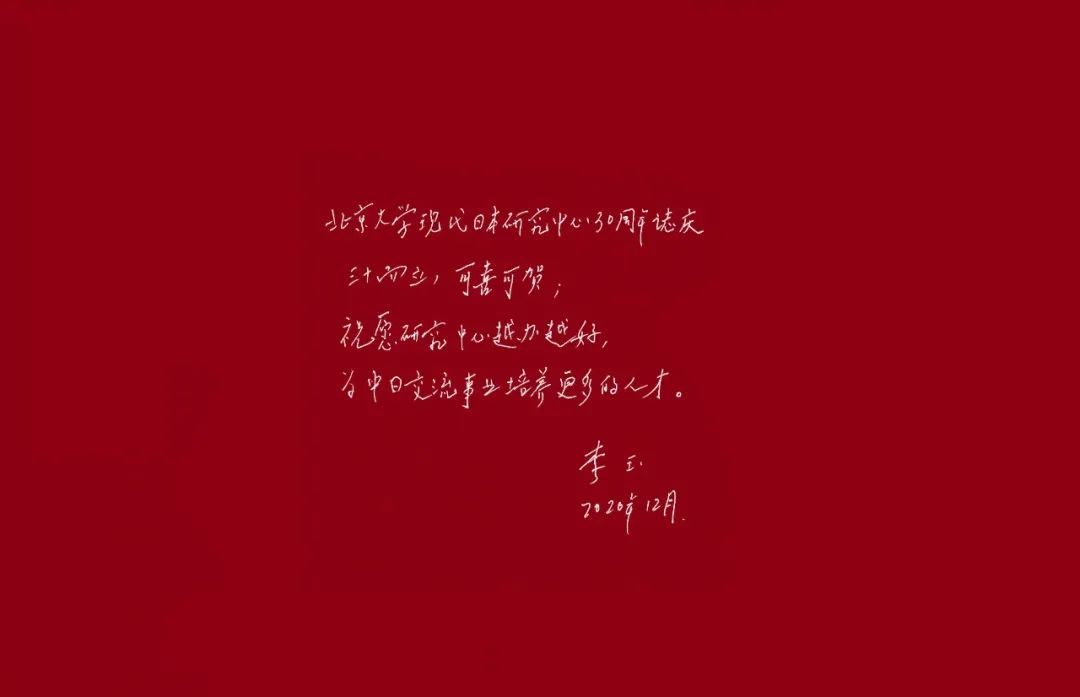 北京大学现代日本研究中心30周年誌庆
三十而立，可喜可贺；
祝愿研究中心越办越好，
为中日交流事业培养更多的人才。
李玉
2020年12月.